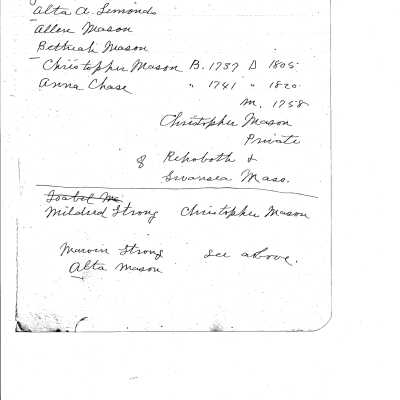 Alta A. Simonds
Allen Mason
Bethiah Mason
Christopher Mason B. 1737 D 1805
Anna Chase " 1741 " 1820
m. 1758
Christopher Mason
Private
of Rehoboth &
Swansea Mass.
Isabel Mc
Mildred Strong Christopher Mason
Marvin Strong see above.
Alta Mason